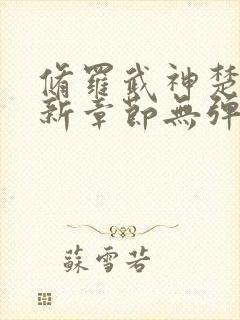 脩羅武神楚
新章節無彈
蘇雪若